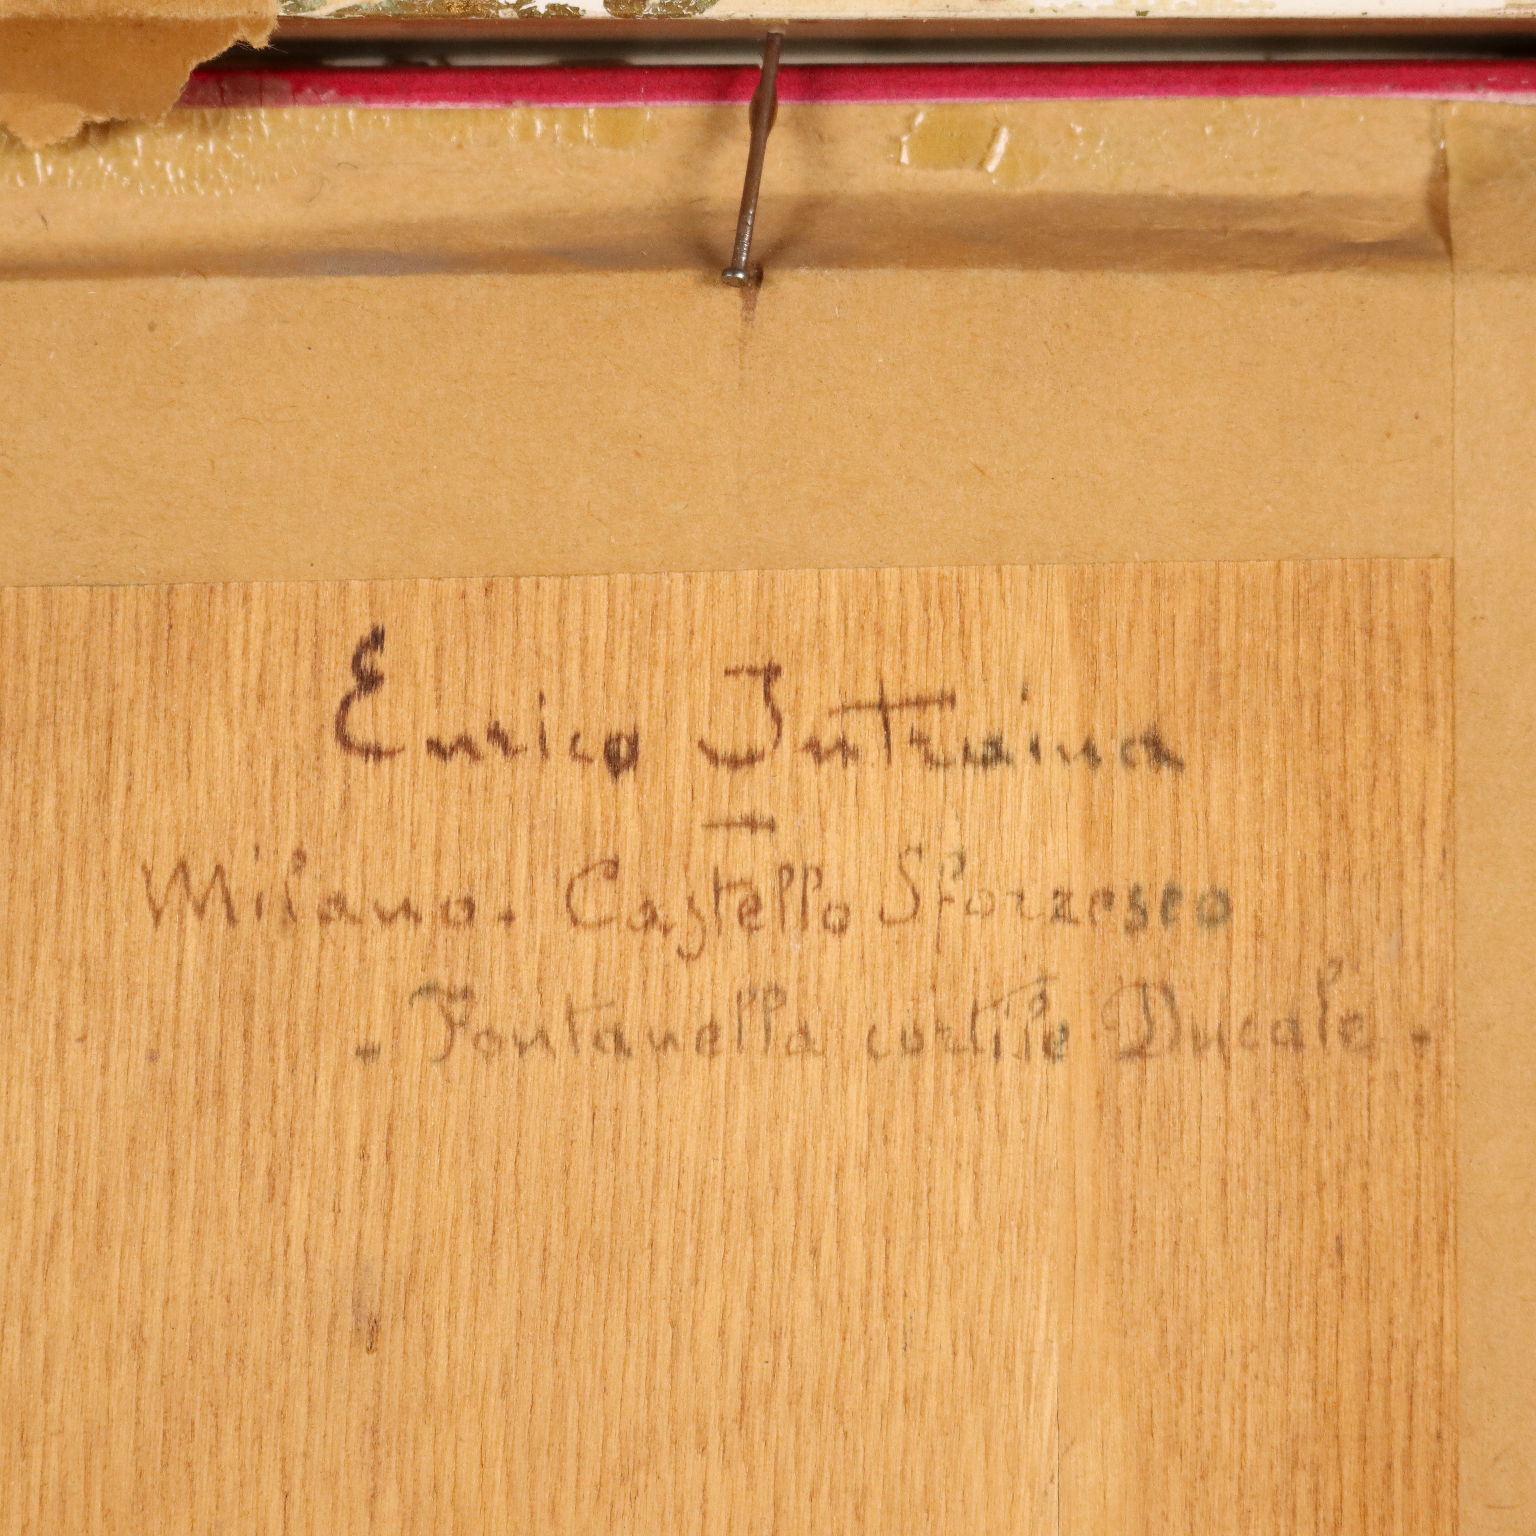 Enrico Intraina
Milano. Castello Sforzesco
. Fontanella cortile Ducale.